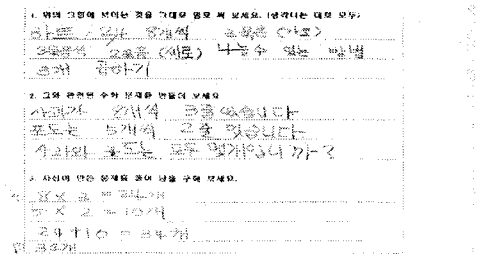 1. 위의 그림에 보이는 것을 그대로 말로 써 보세요. (생각나는 대로 모두)
하트 8개씩 3묶음 (가로)
3묶음씩 2묶음 (세로) 나눌수 있는 방법
곱하기
2. 그와 관련된 수학 문제를 만들어 보세요
사과가 8개씩 3줄 있습니다
포도는 5개씩 2줄 있습니다
사과와 포도는 모두 몇개입니까?
3. 자신이 만든 문제를 풀어 답을 구해 보세요.
8 × 3 = 24개
5 × 2 = 10개
24 + 10 = 34개
답 34개